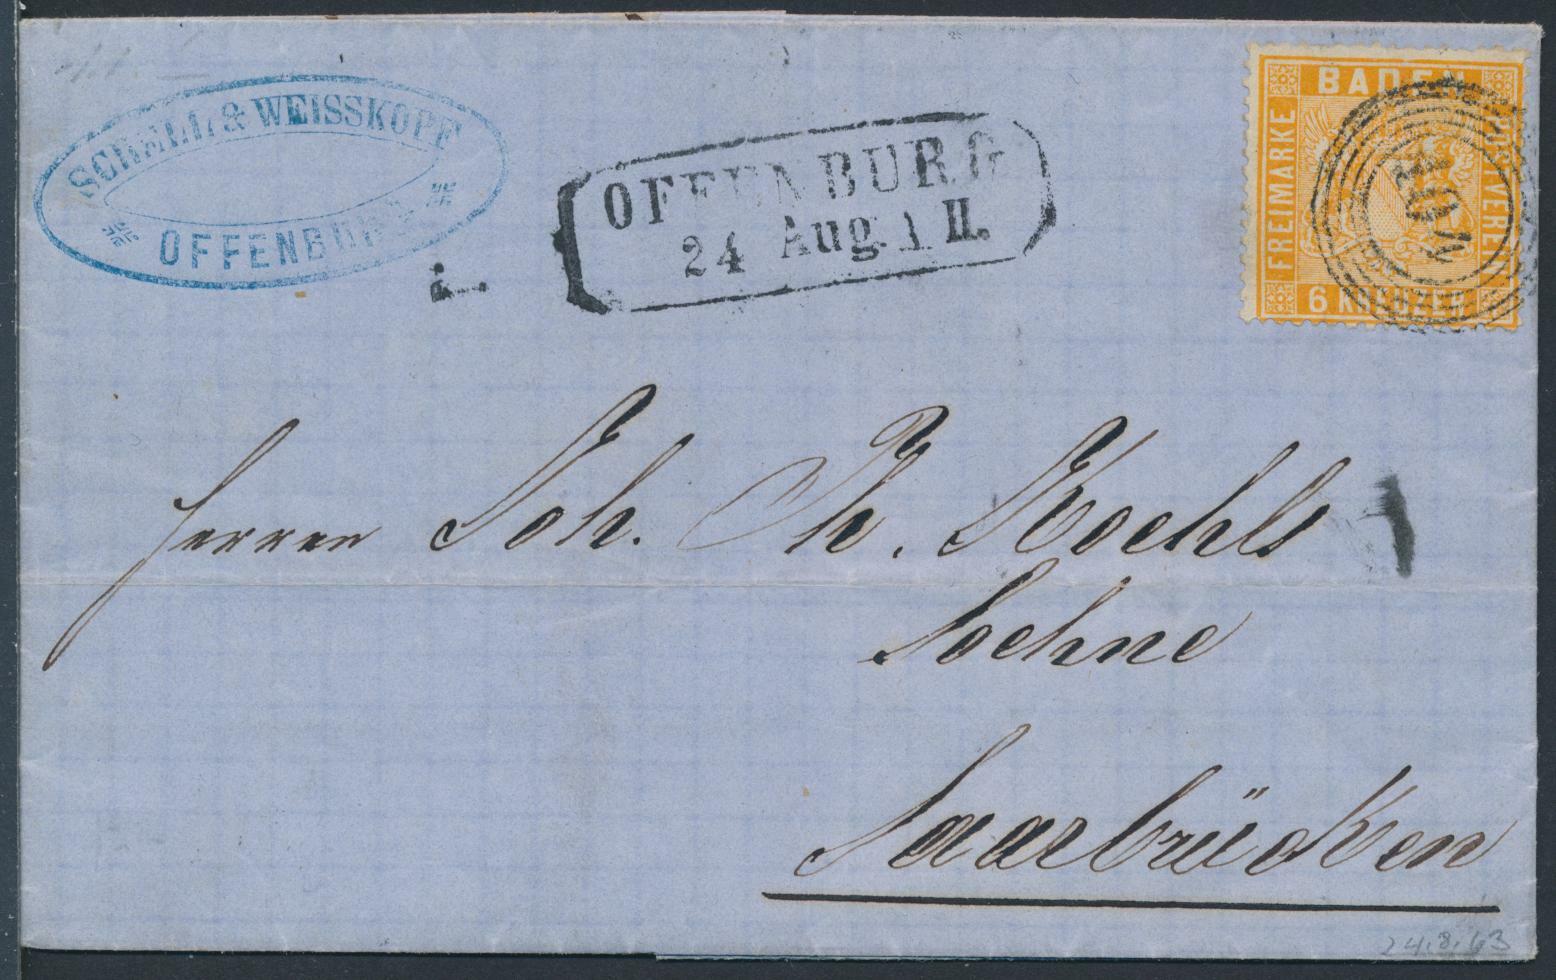 SCHELL & WEISSKOPF
OFFENBURG
OFFENBURG
24 Aug. II.
BADEN
FREIMARKE
POSTVEREIN
6 KREUZER
104
Herren Joh. Ph. Koehls
Soehne
Saarbrücken
24.8.63